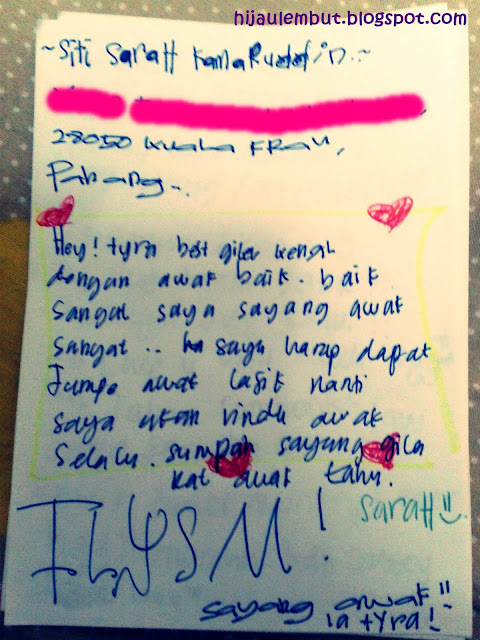 hijaulembut.blogspot.com
~Siti Sarah Kamaruddin.~
28050 Kuala Krau,
Pahang~.
Hey! tyra best giler kenal
dengan awak baik. baik
sangat saya sayang awak
sangat .. saya harap dapat
Jumpa awak lagik nanti
saya akan rindu awak
Selalu. sumpah sayang gila
kat awak tahu.
SaraH
ILYSM!
sayang awak
tyra!